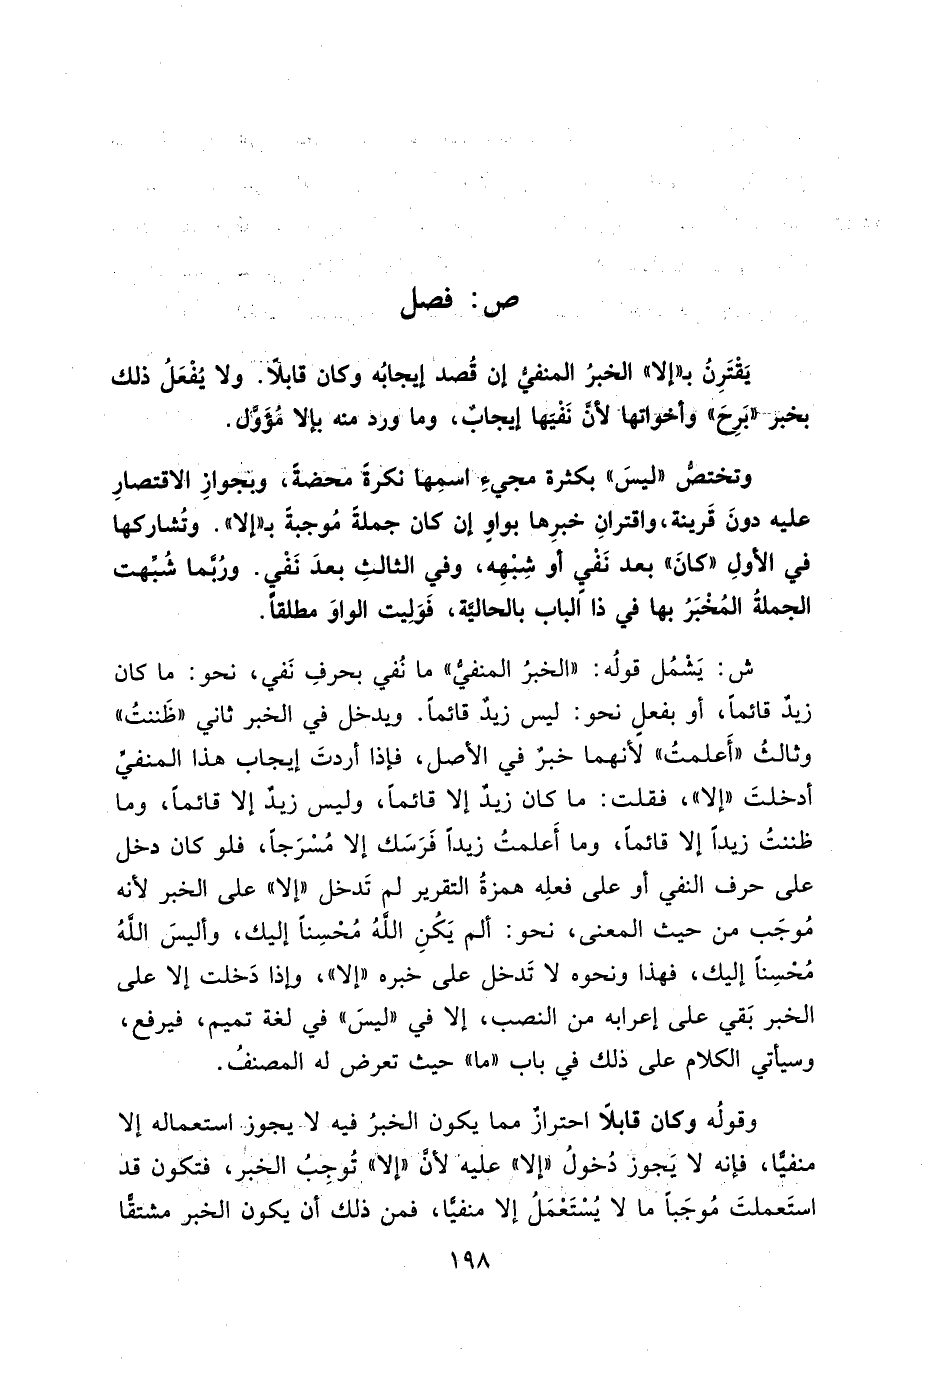 ص: فصل
يَقْتَرِنُ بـ«إلا» الخبرُ المنفيُّ إن قُصد إيجابُه وكان قابلًا. ولا يُفْعَلُ ذلك
بخبر «بَرِحَ» وأخواتها لأنَّ نَفْيَها إيجابٌ، وما ورد منه بإلا مُؤَوَّل.
وتختصُّ «ليسَ» بكثرة مجيءِ اسمِها نكرةً محضةً، وبجوازِ الاقتصارِ
عليه دونَ قَرينة، واقترانِ خبرِها بواوٍ إن كان جملةً مُوجبةً بـ«إلا». وتُشاركها
في الأولِ «كانَ» بعد نَفْيٍ أو شِبْهِه، وفي الثالثِ بعدَ نَفْي. ورُبَّما شُبِّهت
الجملةُ المُخْبَرُ بها في ذا الباب بالحاليَّة، فَوَلِيت الواوَ مطلقاً.
ش: يَشْمُل قولُه: «الخبرُ المنفيُّ» ما نُفي بحرفِ نَفي، نحو: ما كان
زيدٌ قائماً، أو بفعلٍ نحو: ليس زيدٌ قائماً. ويدخل في الخبر ثاني «ظَننتُ»
وثالثُ «أَعلمتُ» لأنهما خبرٌ في الأصل، فإذا أردتَ إيجاب هذا المنفيِّ
أدخلتَ «إلا»، فقلت: ما كان زيدٌ إلا قائماً، وليس زيدٌ إلا قائماً، وما
ظننتُ زيداً إلا قائماً، وما أَعلمتُ زيداً فَرَسَك إلا مُسْرَجاً، فلو كان دخل
على حرف النفي أو على فعلِه همزةُ التقرير لم تَدخل «إلا» على الخبر لأنه
مُوجَب من حيث المعنى، نحو: ألم يَكُنِ اللَّهُ مُحْسِناً إليك، وأليسَ اللَّهُ
مُحْسِناً إليك، فهذا ونحوه لا تَدخل على خبره «إلا»، وإذا دَخلت إلا على
الخبر بَقي على إعرابه من النصب، إلا في «ليسَ» في لغة تميم، فيرفع،
وسيأتي الكلام على ذلك في باب «ما» حيث تعرض له المصنفُ.
وقولُه وكان قابلًا احترازٌ مما يكون الخبرُ فيه لا يجوز استعماله إلا
منفيًّا، فإنه لا يَجوز دُخولُ «إلا» عليه لأنَّ «إلا» تُوجِبُ الخبر، فتكون قد
استَعملتَ مُوجَباً ما لا يُسْتَعْمَلُ إلا منفيًّا، فمن ذلك أن يكون الخبر مشتقًّا
١٩٨